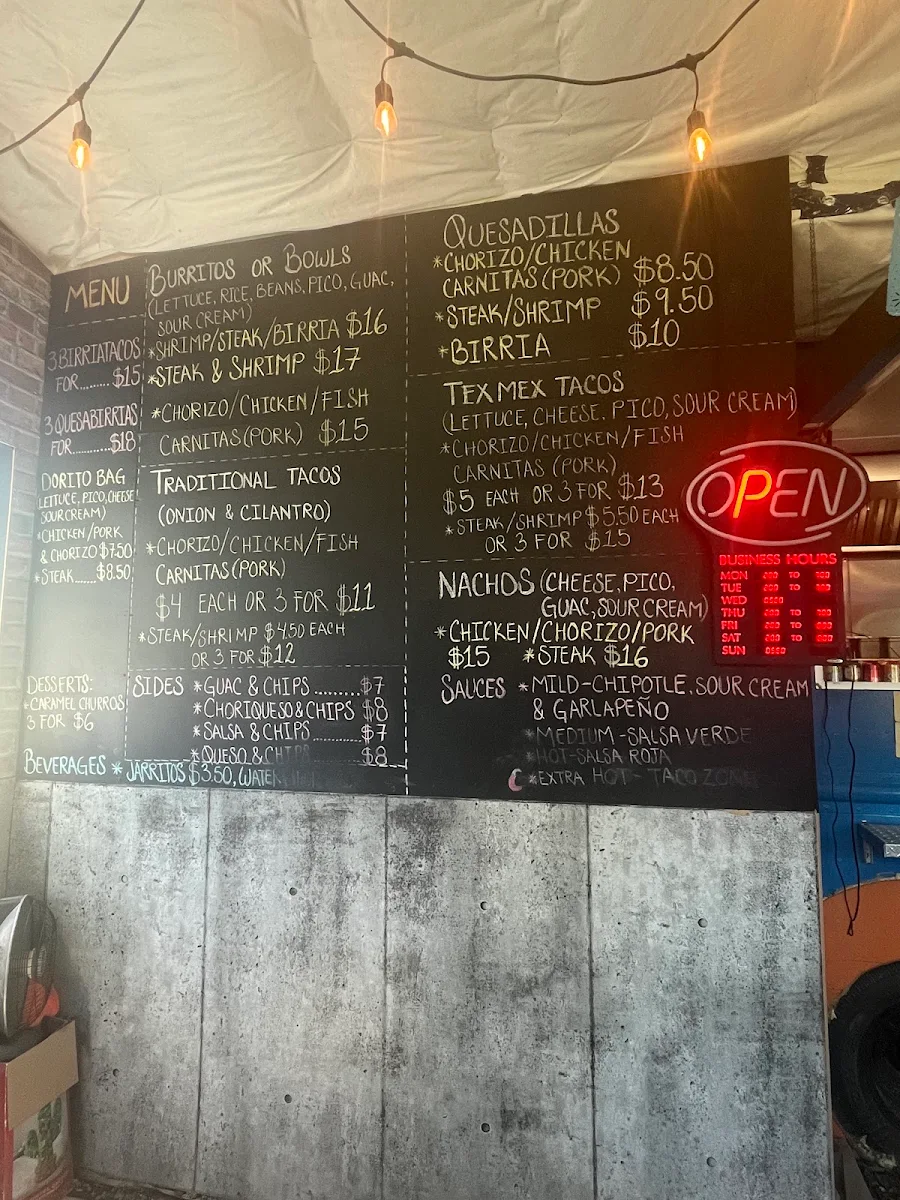 MENU
3 BIRRIATACOS
FOR........ $15
3 QUESABIRRIAS
FOR........ $18
DORITO BAG
LETTUCE, PICO, CHEESE
SOUR CREAM)
*CHICKEN/PORK
& CHORIZO $7.50
*STEAK...... $8.50
DESSERTS:
*CARAMEL CHURROS
3 FOR $6
BURRITOS OR BOWLS
(LETTUCE, RICE, BEANS, PICO, GUAC,
SOUR CREAM)
*SHRIMP/STEAK/BIRRIA $16
*STEAK & SHRIMP $17
*CHORIZO/CHICKEN/FISH
CARNITAS (PORK) $15
TRADITIONAL TACOS
(ONION & CILANTRO)
*CHORIZO/CHICKEN/FISH
CARNITAS (PORK)
$4 EACH OR 3 FOR $11
*STEAK/SHRIMP $4.50 EACH
OR 3 FOR $12
SIDES *GUAC & CHIPS.........$7
*CHORIQUESO & CHIPS $8
*SALSA & CHIPS..........$7
*QUESO & CHIPS $8
BEVERAGES * JARRITOS $3.50, WATER
QUESADILLAS
*CHORIZO/CHICKEN
CARNITAS (PORK) $8.50
*STEAK/SHRIMP $9.50
*BIRRIA $10
TEX MEX TACOS
(LETTUCE, CHEESE, PICO, SOUR CREAM)
*CHORIZO/CHICKEN/FISH
CARNITAS (PORK)
$5 EACH OR 3 FOR $13
*STEAK/SHRIMP $5.50 EACH
OR 3 FOR $15
NACHOS (CHEESE, PICO,
GUAC, SOUR CREAM)
*CHICKEN/CHORIZO/PORK
$15 *STEAK $16
SAUCES *MILD-CHIPOTLE, SOUR CREAM
& GARLAPEÑO
*MEDIUM-SALSA VERDE
*HOT-SALSA ROJA
*EXTRA HOT- TACO ZONE
OPEN
BUSINESS HOURS
MON TO
TUE TO
WED
THU TO
FRI TO
SAT TO
SUN